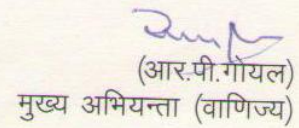 (आर.पी.गोयल)
मुख्य अभियन्ता (वाणिज्य)